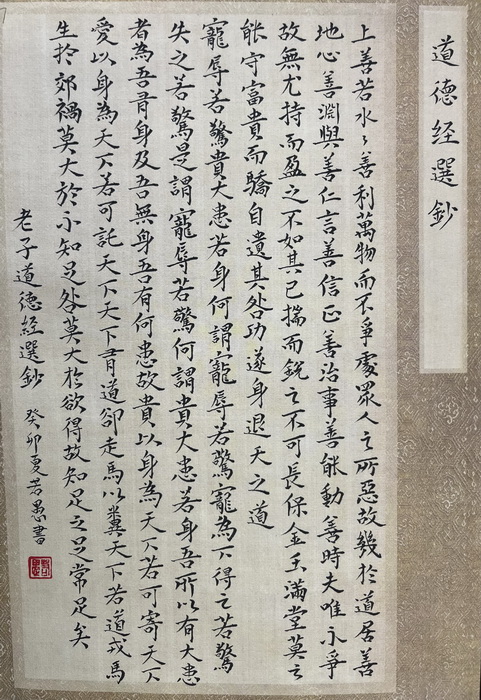 道德經選鈔
上善若水〻善利萬物而不爭處眾人之所惡故幾於道居善
地心善淵與善仁言善信正善治事善能動善時夫唯不爭
故無尤持而盈之不如其已揣而銳之不可長保金玉滿堂莫之
能守富貴而驕自遺其咎功遂身退天之道
寵辱若驚貴大患若身何謂寵辱若驚寵為下得之若驚
失之若驚是謂寵辱若驚何謂貴大患若身吾所以有大患
者為吾有身及吾無身吾有何患故貴以身為天下若可寄天下
愛以身為天下若可託天下天下有道卻走馬以糞天下若道戎馬
生於郊禍莫大於不知足咎莫大於欲得故知足之足常足矣
老子道德經選鈔 癸卯夏若愚書